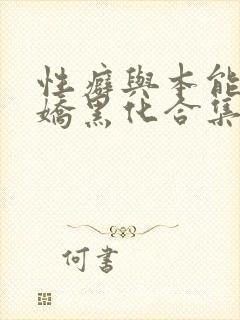 性癖與本能
嬌黑化合集
何書